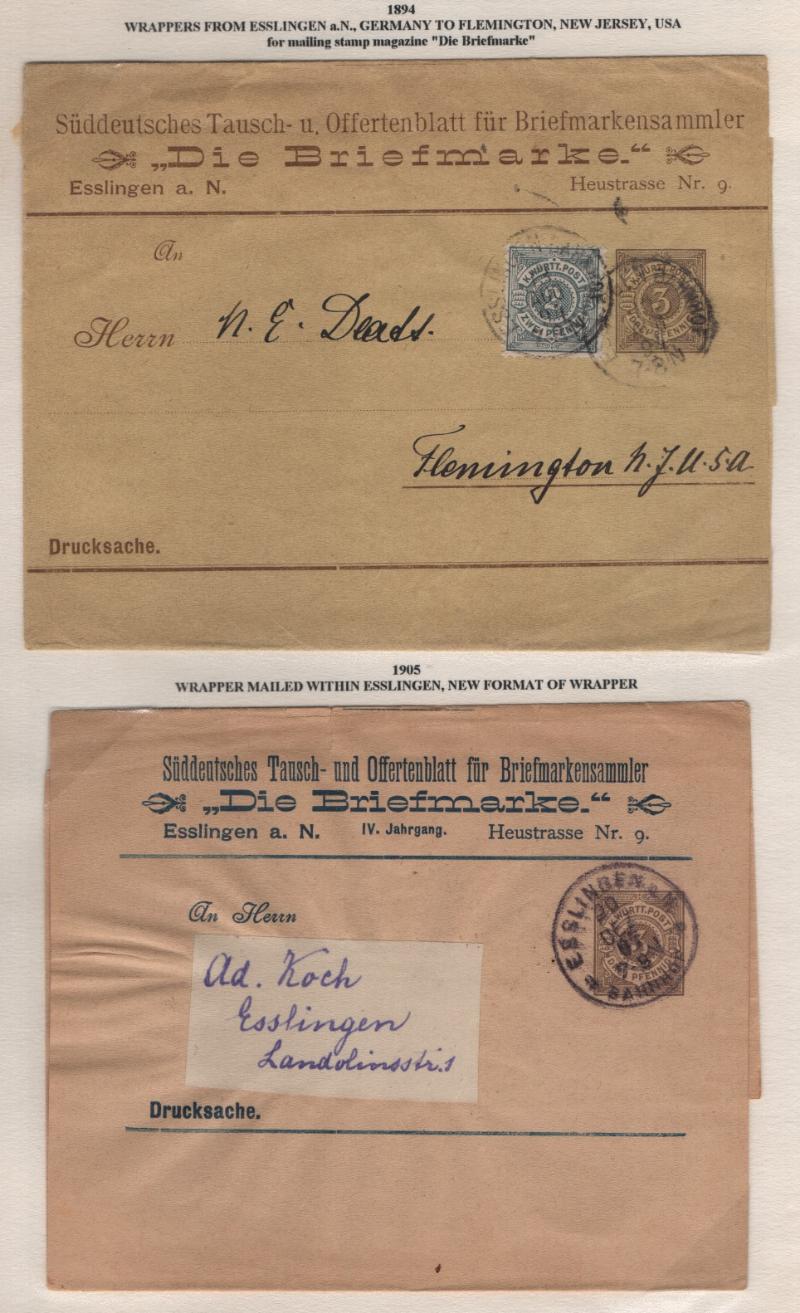 1894
WRAPPERS FROM ESSLINGEN a.N., GERMANY TO FLEMINGTON, NEW JERSEY, USA
for mailing stamp magazine "Die Briefmarke"
Süddeutsches Tausch- u. Offertenblatt für Briefmarkensammler
„Die Briefmarke.“
Esslingen a. N. Heustrasse Nr. 9.
An
Herrn N. E. Deats.
K.WÜRTT.POST
ZWEI PFENNIG
K.WÜRTT.POST
3
DREI PFENNIG
Flemington N.J.U.S.A
Drucksache.
1905
WRAPPER MAILED WITHIN ESSLINGEN, NEW FORMAT OF WRAPPER
Süddeutsches Tausch- und Offertenblatt für Briefmarkensammler
„Die Briefmarke.“
Esslingen a. N. IV. Jahrgang. Heustrasse Nr. 9.
An Herrn
ESSLINGEN A.N.
K.WÜRTT.POST
PFENNIG
BAHNHOF
Ad. Koch
Esslingen
Landolinsstr.1
Drucksache.